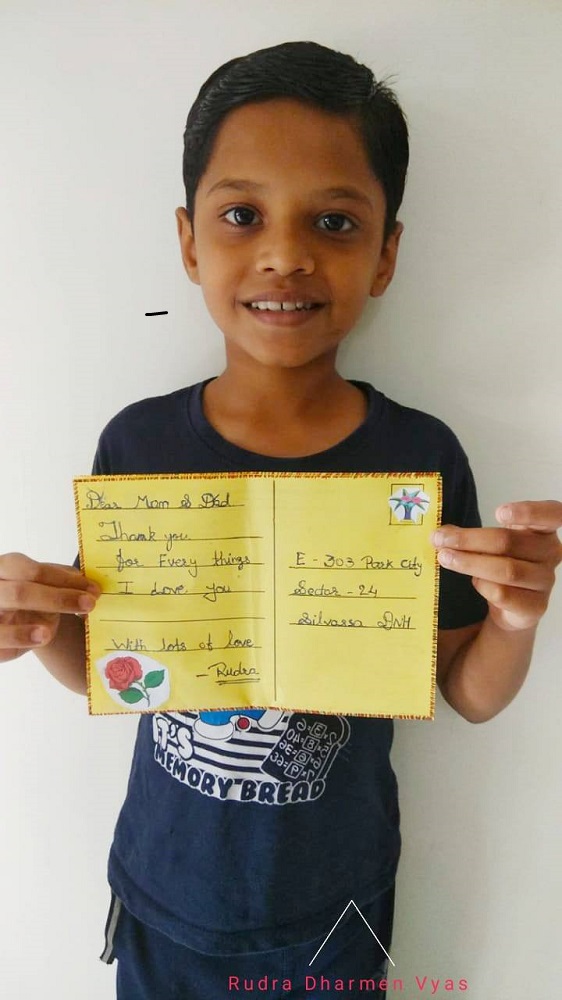 Dear Mom & Dad
Thank you
for Every things
I Love you
With lots of love
- Rudra
E - 303 Park City
Sector - 24
Silvassa DNH
IT'S
MEMORY BREAD
Rudra Dharmen Vyas